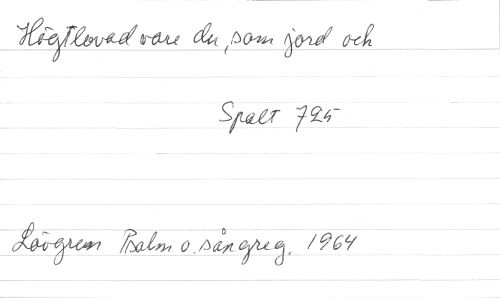 Högtlovad vare du, som jord och
Spalt 725
Lövgren Psalm o. sångreg. 1964